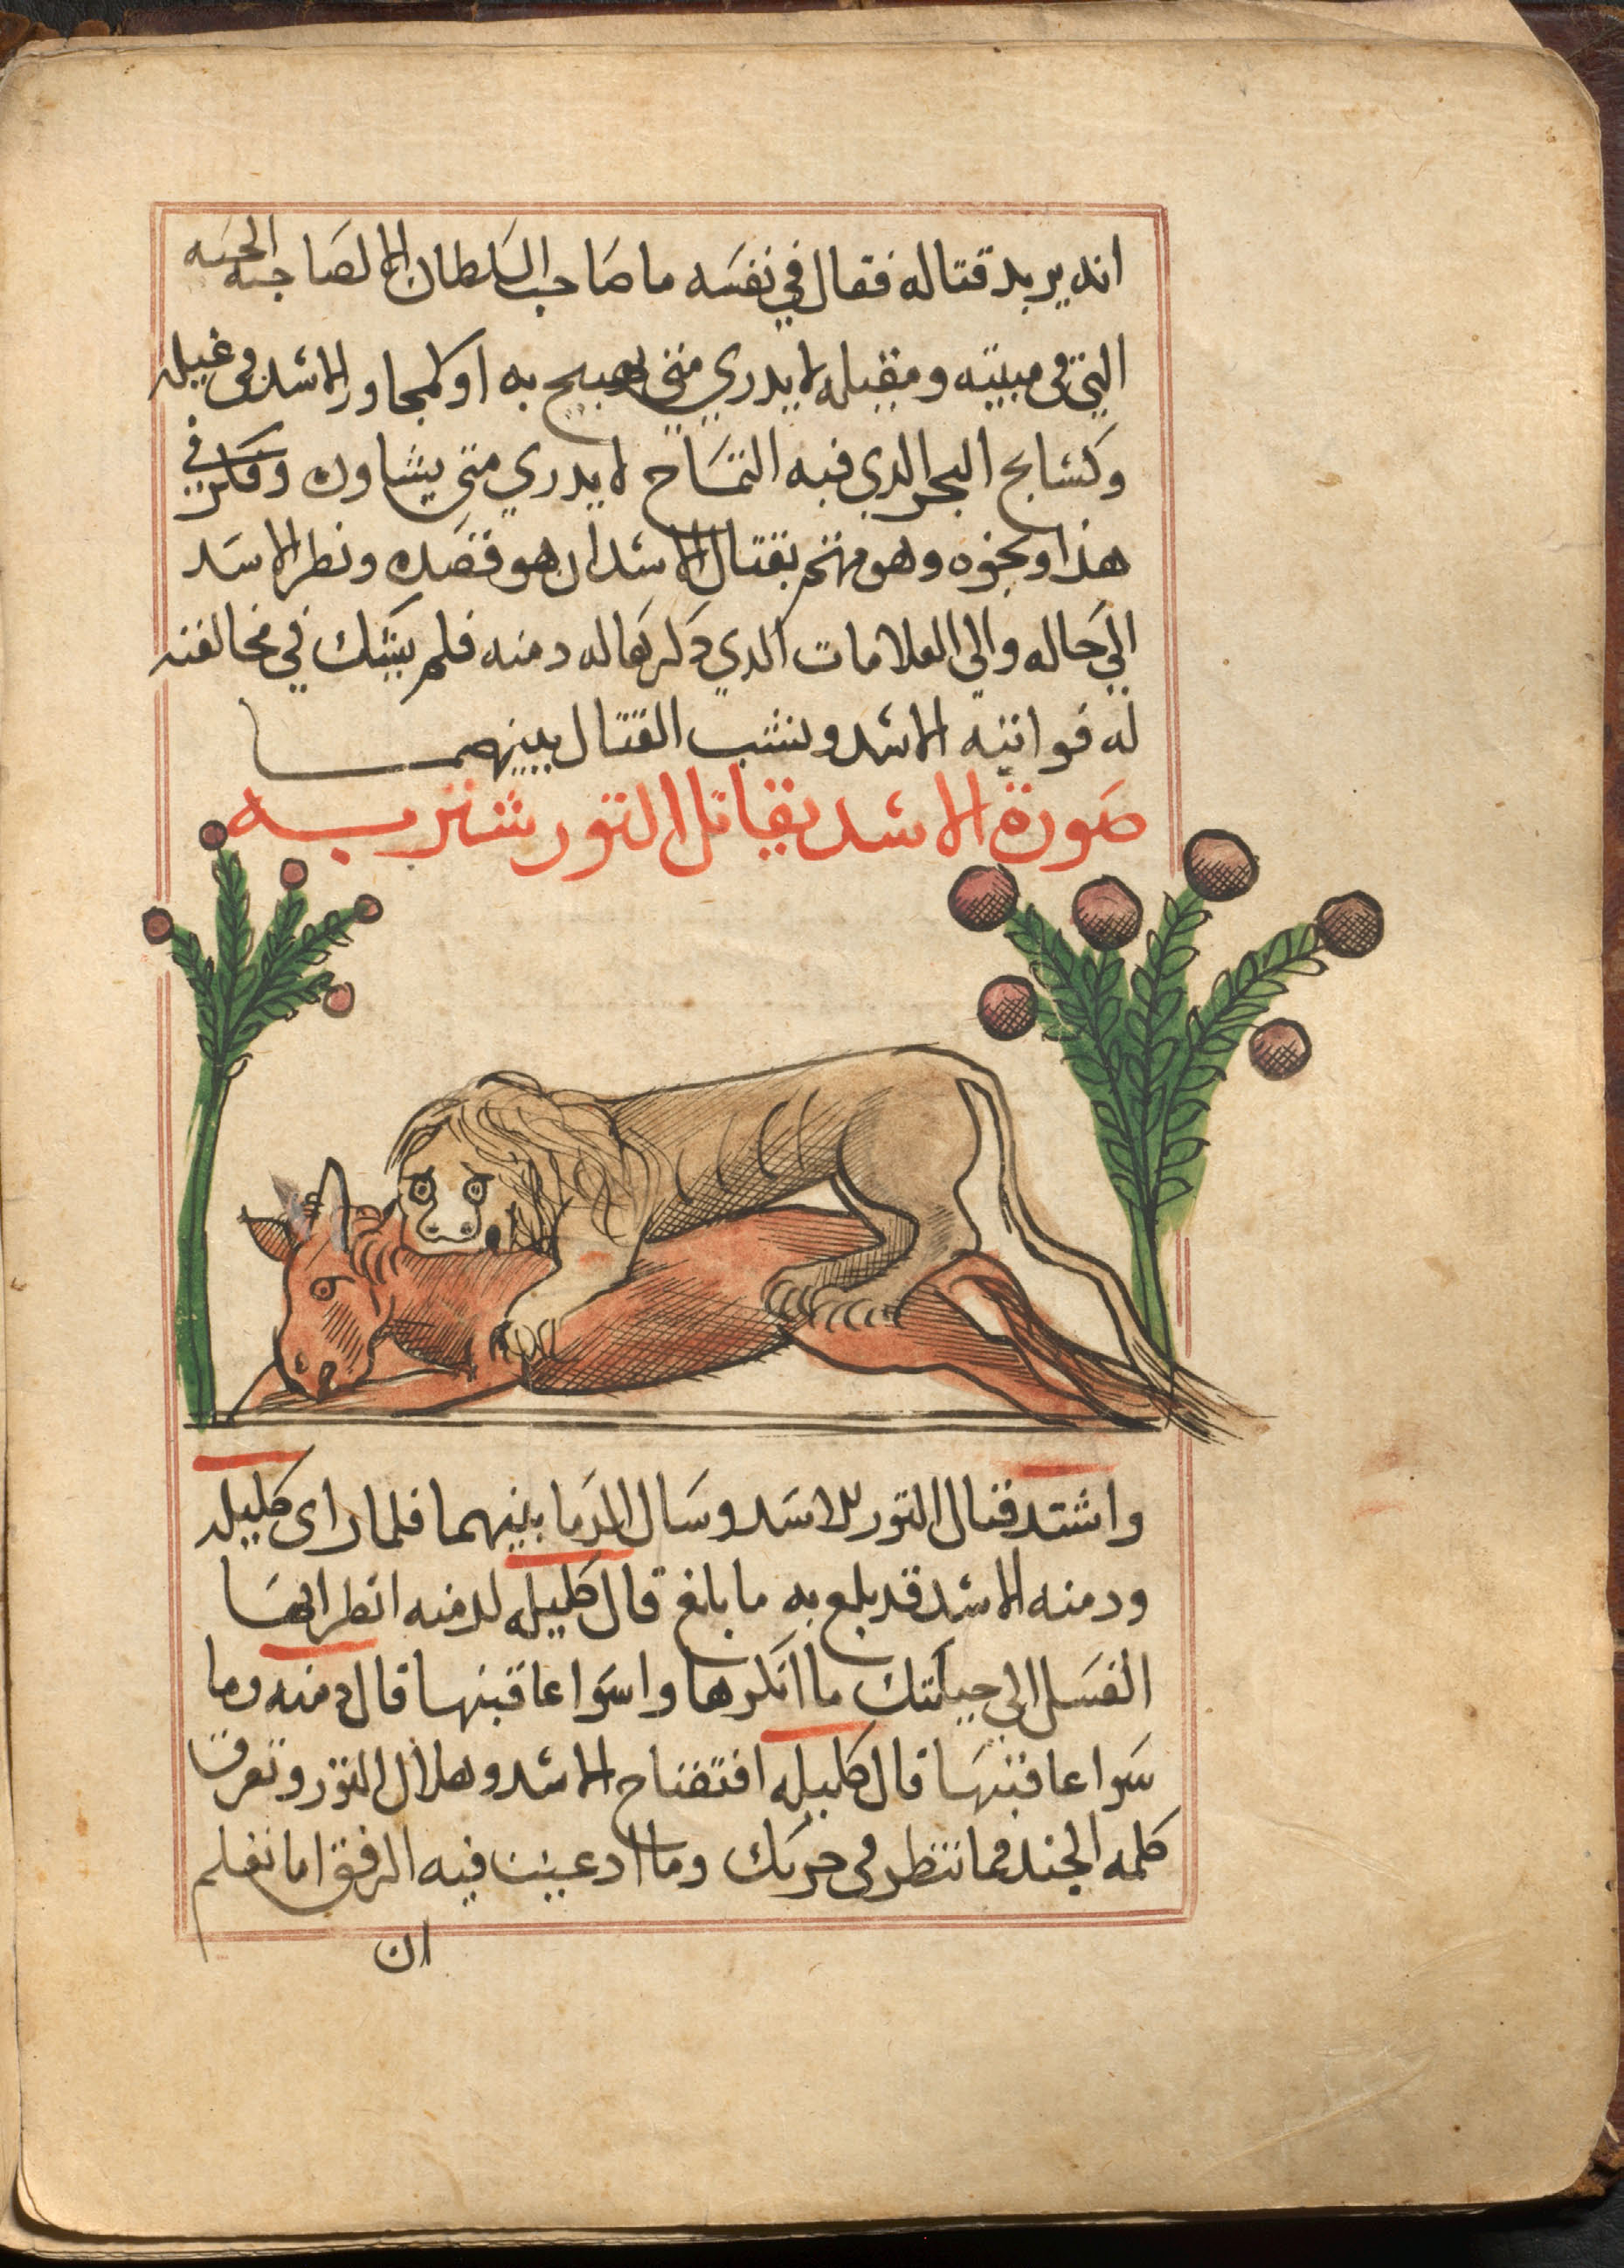 انه يريد قتاله فقال في نفسه ما صاحب السلطان الا لصاحب الحيه
التي في مبيته ومقيله لا يدري متي تهيج به او كمجاور الاسد في غيله
وكسابح البحر الدي فيه التمساح لا يدري متي يشاوره وفكر في
هذا ونحوه وهو مهتم بقتال الاسد ان هو قصده ونظر الاسد
الي حاله والي العلامات الدي دكرها له دمنه فلم يشك في مخالفته
له فواثبه الاسد ونشب القتال بينهما
صورة الاسد يقاتل الثور شتربه
واشتد قتال الثور للاسد وسال الدما بينهما فلما راى كليله
ودمنه الاسد قد بلغ به ما بلغ قال كليله لدمنه انظر ايها
الفسل الي حيلتك ما انكرها واسوا عاقبتها قال دمنه وما
سوا عاقبتها قال كليله افتضاح الاسد وهلاك الثور وتفرق
كلمه الجند فما تنتظر في حربك وما ادعيت فيه الرفق اما تعلم
ان